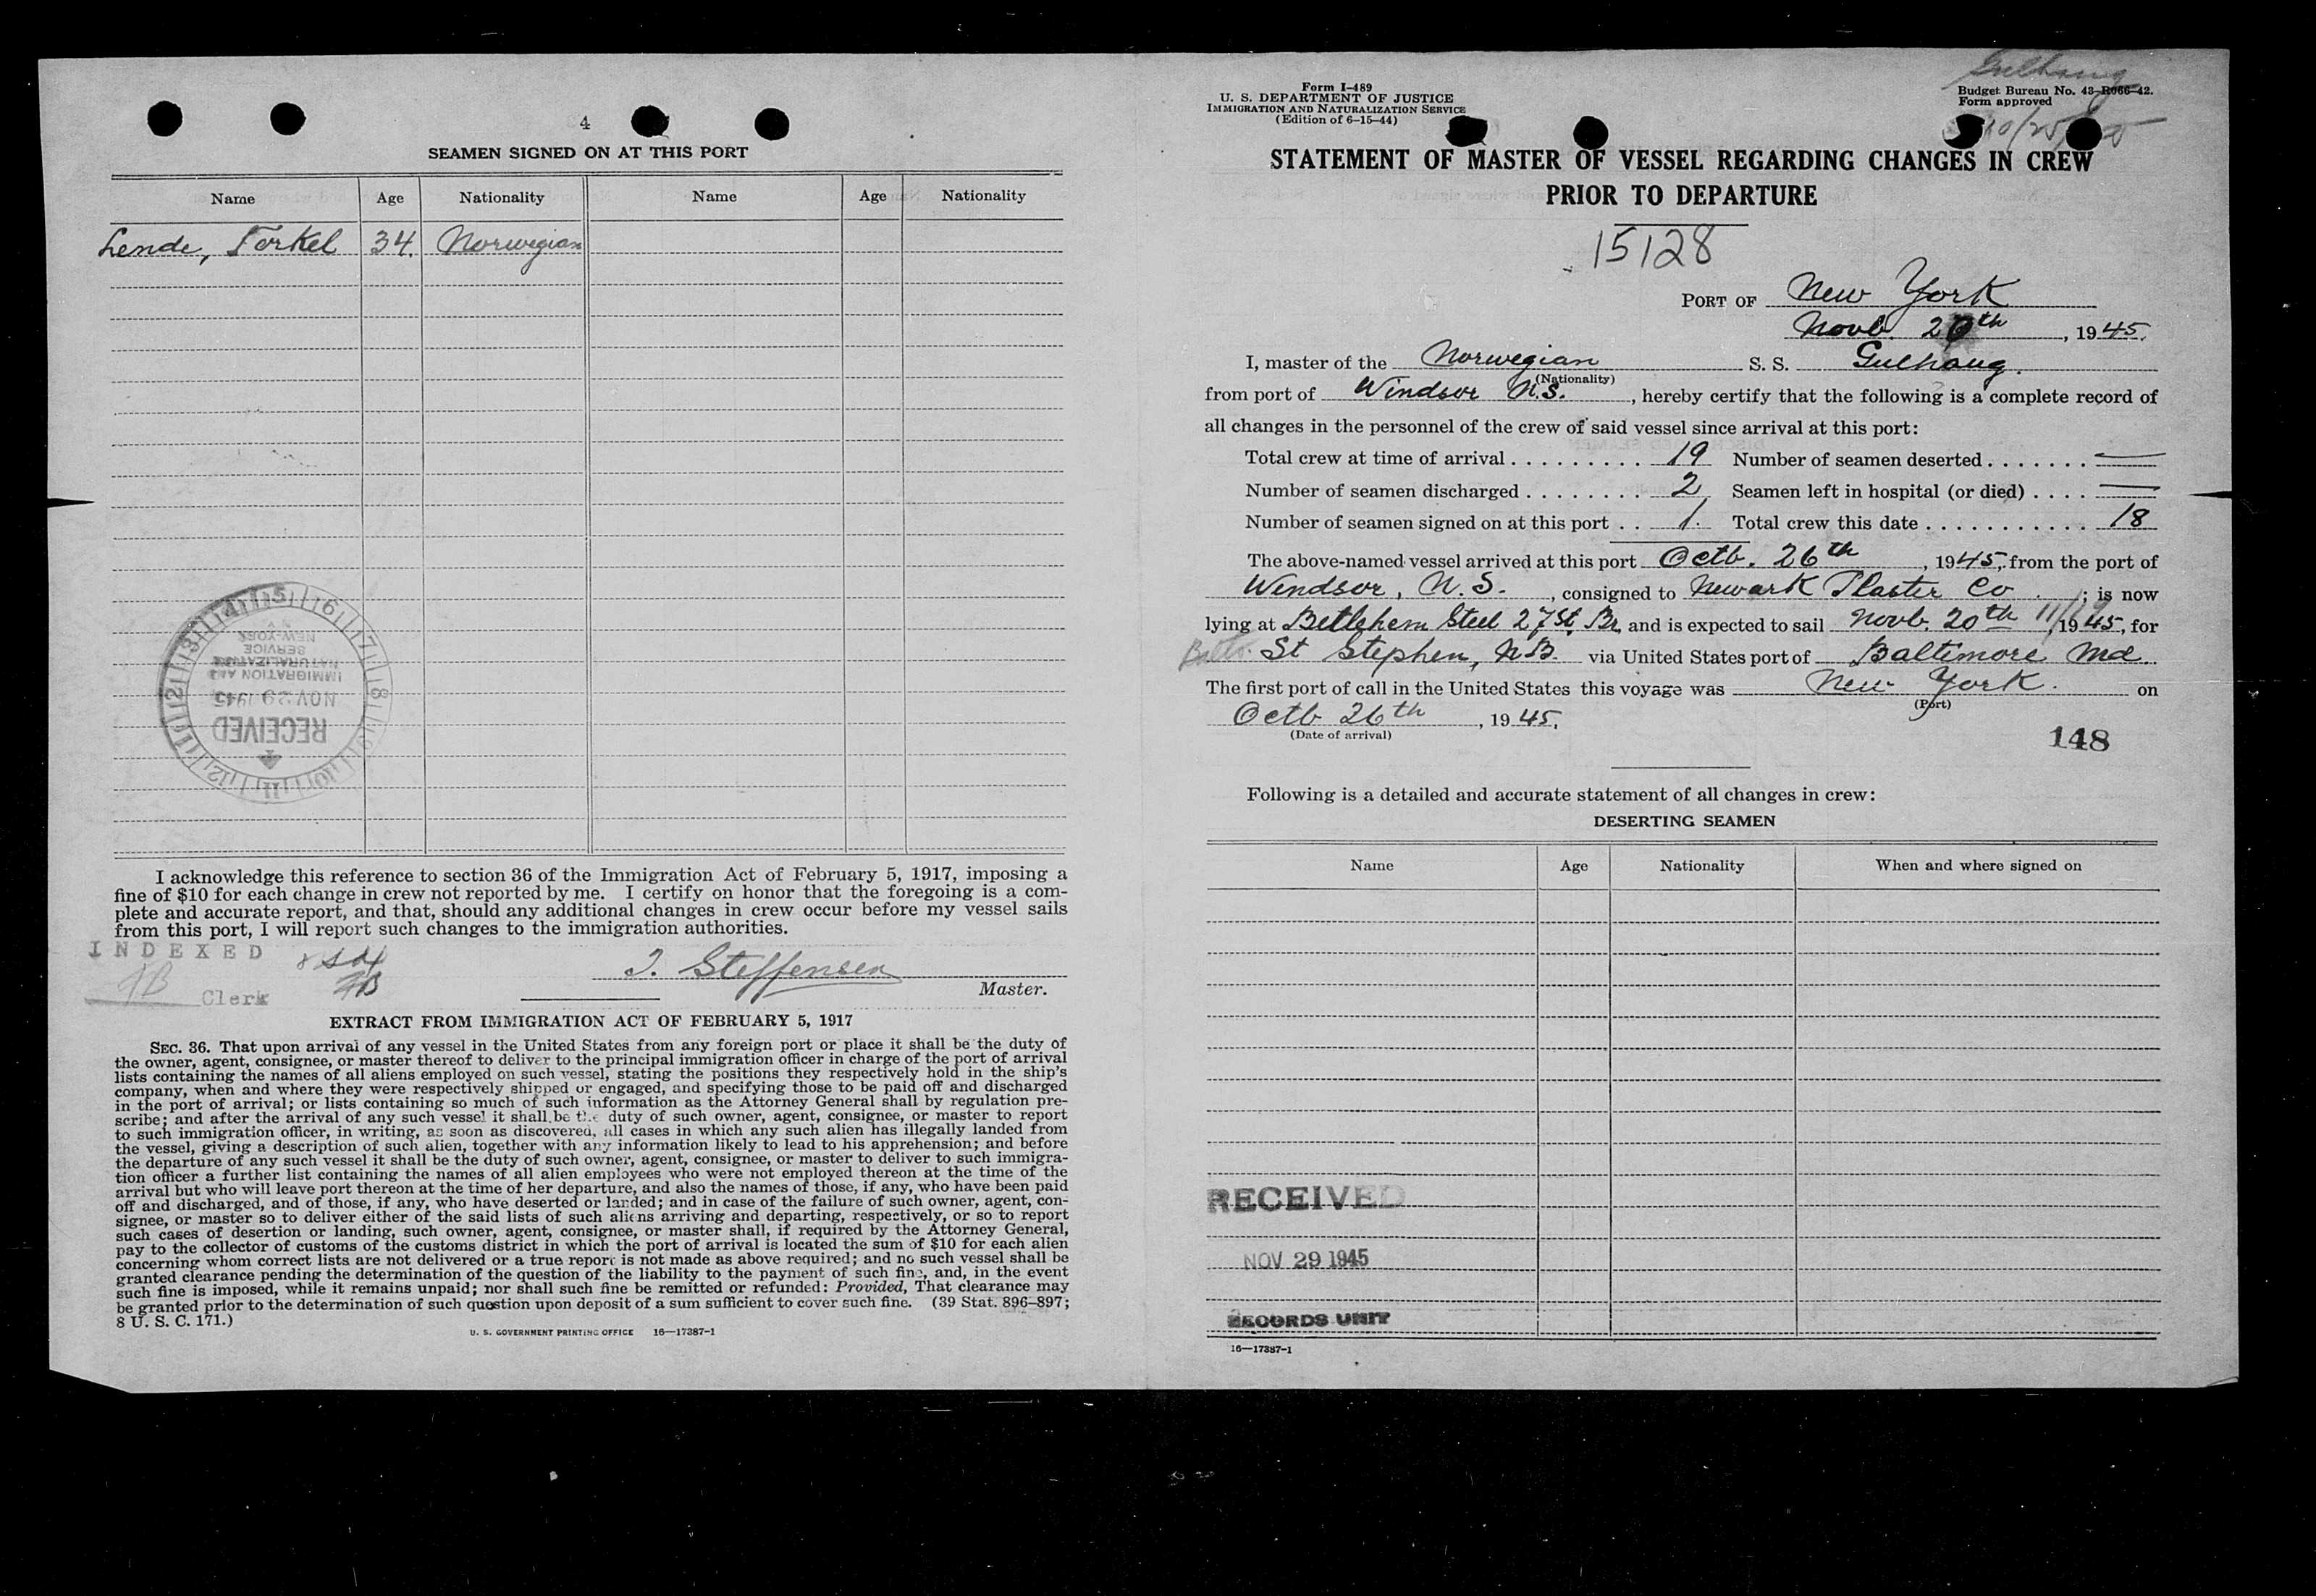 4
SEAMEN SIGNED ON AT THIS PORT
Name Age Nationality Name Age Nationality
Lende, Torkel 34. Norwegian
RECEIVED
NOV 29 1945
IMMIGRATION AND
NATURALIZATION
SERVICE
NEW YORK
N.Y.
I acknowledge this reference to section 36 of the Immigration Act of February 5, 1917, imposing a
fine of $10 for each change in crew not reported by me. I certify on honor that the foregoing is a com-
plete and accurate report, and that, should any additional changes in crew occur before my vessel sails
from this port, I will report such changes to the immigration authorities.
INDEXED
Clerk
J. Steffensen
Master.
EXTRACT FROM IMMIGRATION ACT OF FEBRUARY 5, 1917
SEC. 36. That upon arrival of any vessel in the United States from any foreign port or place it shall be the duty of
the owner, agent, consignee, or master thereof to deliver to the principal immigration officer in charge of the port of arrival
lists containing the names of all aliens employed on such vessel, stating the positions they respectively hold in the ship's
company, when and where they were respectively shipped or engaged, and specifying those to be paid off and discharged
in the port of arrival; or lists containing so much of such information as the Attorney General shall by regulation pre-
scribe; and after the arrival of any such vessel it shall be the duty of such owner, agent, consignee, or master to report
to such immigration officer, in writing, as soon as discovered, all cases in which any such alien has illegally landed from
the vessel, giving a description of such alien, together with any information likely to lead to his apprehension; and before
the departure of any such vessel it shall be the duty of such owner, agent, consignee, or master to deliver to such immigra-
tion officer a further list containing the names of all alien employees who were not employed thereon at the time of the
arrival but who will leave port thereon at the time of her departure, and also the names of those, if any, who have been paid
off and discharged, and of those, if any, who have deserted or landed; and in case of the failure of such owner, agent, con-
signee, or master so to deliver either of the said lists of such aliens arriving and departing, respectively, or so to report
such cases of desertion or landing, such owner, agent, consignee, or master shall, if required by the Attorney General,
pay to the collector of customs of the customs district in which the port of arrival is located the sum of $10 for each alien
concerning whom correct lists are not delivered or a true report is not made as above required; and no such vessel shall be
granted clearance pending the determination of the question of the liability to the payment of such fine, and, in the event
such fine is imposed, while it remains unpaid; nor shall such fine be remitted or refunded: Provided, That clearance may
be granted prior to the determination of such question upon deposit of a sum sufficient to cover such fine. (39 Stat. 896–897;
8 U. S. C. 171.)
U. S. GOVERNMENT PRINTING OFFICE 16—17387-1
Form I–489
U. S. DEPARTMENT OF JUSTICE
IMMIGRATION AND NATURALIZATION SERVICE
(Edition of 6–15–44)
Gulhaug
Budget Bureau No. 43–R066–42.
Form approved
STATEMENT OF MASTER OF VESSEL REGARDING CHANGES IN CREW
PRIOR TO DEPARTURE
15128
PORT OF New York
Novb. 20th, 1945.
I, master of the Norwegian S. S. Gulhaug.
(Nationality)
from port of Windsor N.S., hereby certify that the following is a complete record of
all changes in the personnel of the crew of said vessel since arrival at this port:
Total crew at time of arrival . . . . . . . . . 19 Number of seamen deserted . . . . . . . —
Number of seamen discharged . . . . . . . . 2 Seamen left in hospital (or died) . . . . —
Number of seamen signed on at this port . . 1. Total crew this date . . . . . . . . . . . . 18
The above-named vessel arrived at this port Octb. 26th, 1945, from the port of
Windsor, N.S., consigned to Newark Plaster Co.; is now
lying at Betlehem Steel 27 St. Br, and is expected to sail Novb. 20th 11/29, 1945, for
Balto. St Stephen, N.B. via United States port of Baltimore Md.
The first port of call in the United States this voyage was New York. on
(Port)
Octb 26th, 1945.
(Date of arrival)
148
Following is a detailed and accurate statement of all changes in crew:
DESERTING SEAMEN
Name Age Nationality When and where signed on
RECEIVED
NOV 29 1945
RECORDS UNIT
16—17387-1